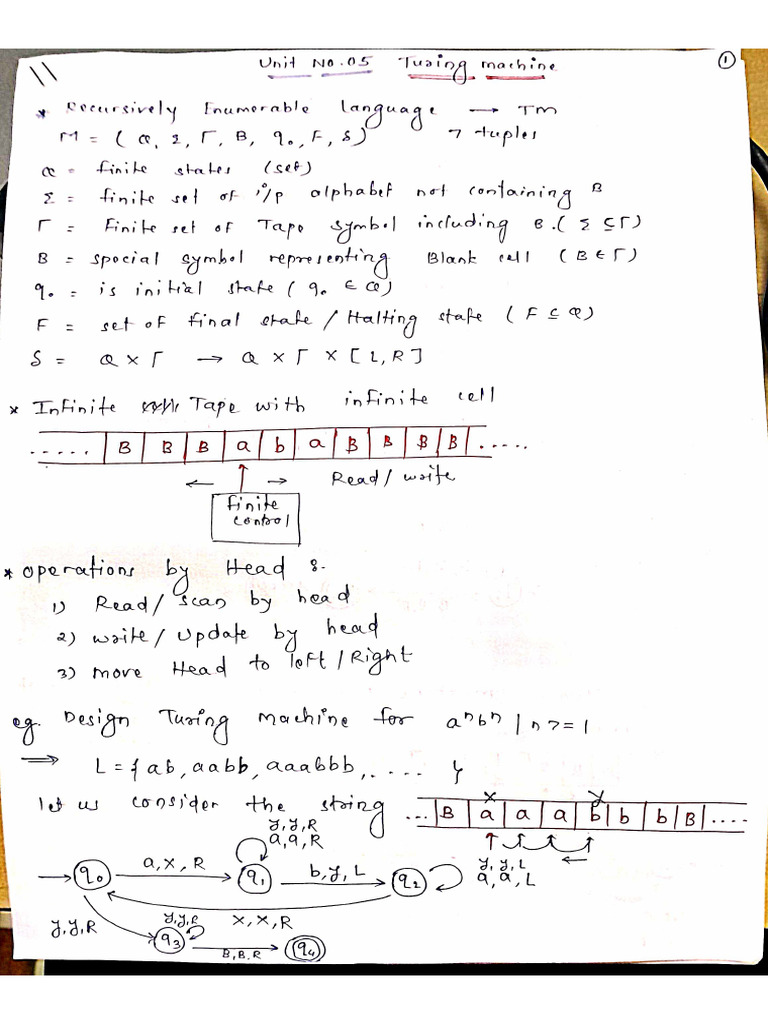 Unit No.05 Turing machine ①
* Recursively Enumerable language → TM
M = ( Q, Σ, Γ, B, q₀, F, δ) 7 tuples
Q = finite states (set)
Σ = finite set of i/p alphabet not containing B
Γ = Finite set of Tape symbol including B. ( Σ ⊆ Γ)
B = special symbol representing Blank cell ( B ∈ Γ )
q₀ = is initial state ( q₀ ∈ Q)
F = set of final state / Halting state ( F ⊆ Q)
δ = Q × Γ → Q × Γ × [ L, R ]
* Infinite Tape with infinite cell
..... B B B a b a B B B B .....
← → Read / write
finite
control
* operations by Head :-
1) Read / scan by head
2) write / update by head
3) move Head to left / Right
eg. Design Turing machine for aⁿbⁿ | n >= 1
⇒ L = { ab, aabb, aaabbb, .... }
x y
let us consider the string ... B a a a b b b B ....
y, y, R
a, a, R
→ q₀ a, x, R q₁ b, y, L q₂ y, y, L
a, a, L
y, y, R q₃ y, y, R x, x, R
B, B, R q₄